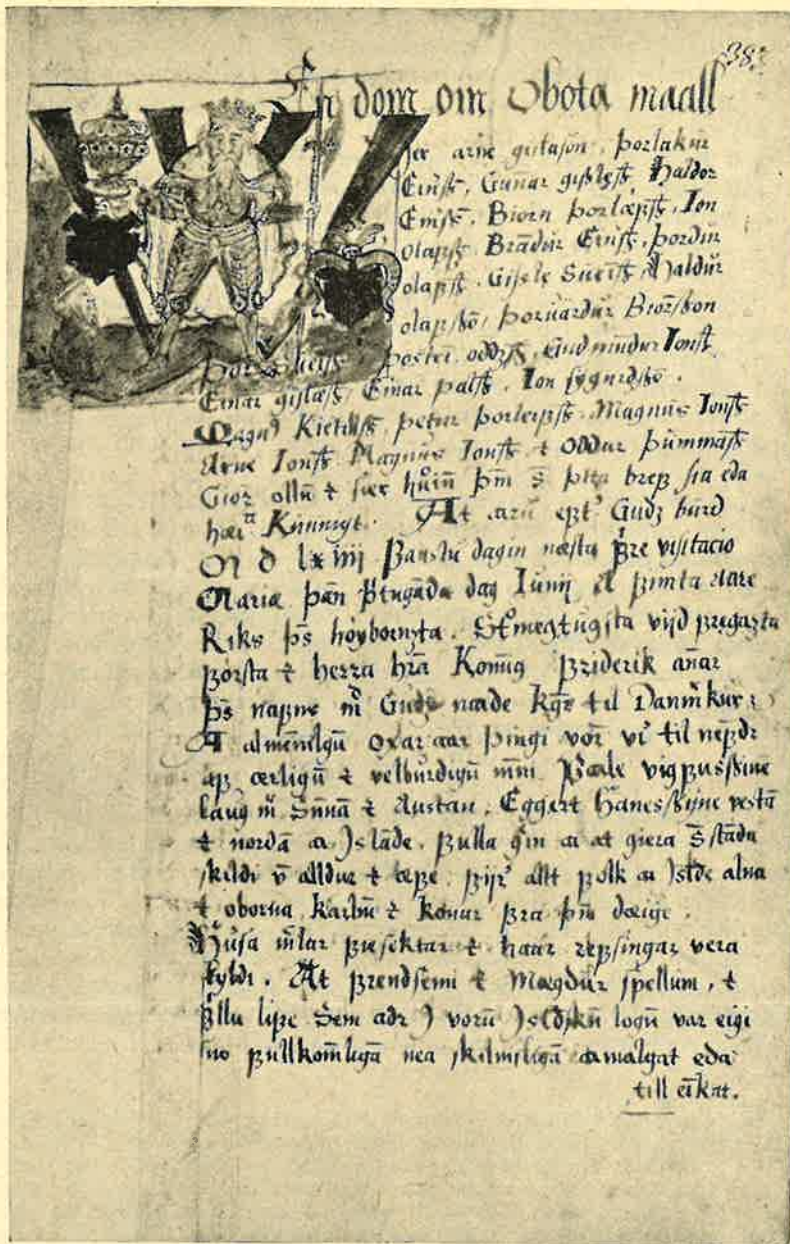 38.
En dom om Obota maall
Wer arne gislason, þorlakur
Einsß, Gunar gislasß Haldor
Einsß, Biorn þorlæfsß, Ion
olafsß. Brādur Einsß, þordur
olafsß. Gisle Sueinsß, Haldur
olafssō, þoruardur Biorsson
oddzß, Gudmundur Ionsß
Einar gislasß, Einar palsß. Ion sygurdssō.
Magn9 Kietilsß, petur þorleifsß. Magnus Ionsß
Arne Ionsß. Magnus Ionsß & Oddur þummasß
Giör ollū & sier huoriū þm s þtta bref sia eda
hæra Kunnigt. At arū ept' Gudz burd
M D lx iiij þanstu dagin næsta fyre visitacio
Mariæ þan þtugāda dag Iunij A fimta aare
Riks þs höyborngta. Stormegtugsta vijd fregazta
forsta & herra hra Konūg Friderik añar
þs nafne m Gudz naade kgs til Danmkur
A almēniligū Oxar aar þingi vor vi' til nefdr
af ærligū & velburdigū mm. Paale vigfussyne
laug m Suña & Austan, Eggert Hanessyne vestā
& nordā a Islāde. fulla
skildi v alldur & æfe. fijr' allt folk a Islde alna
& oborna karlm & konur fra þm dæigi.
Hūsa mlar fusektar & haar refsingar vera
skyldi. At frendsemi & Mægdur spellum, &
ollu life Sem adr J voru Isldskū logū var eigi
suo fullkomligā nea skilmsligā amalgat eda
till eikat.